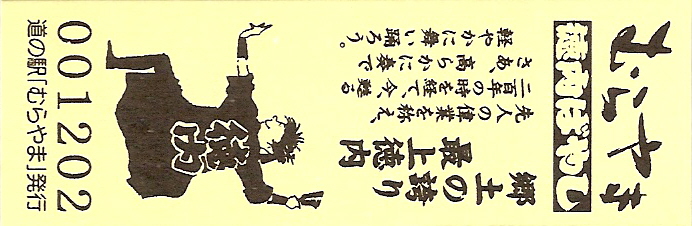 むらやま
徳内ばやし
郷土の誇り
最上徳内
先人の偉業を称え、
二百年の時を経て、今、甦る
さあ、高らかに奏で
軽やかに舞い踊ろう。
徳内
001202
道の駅「むらやま」発行